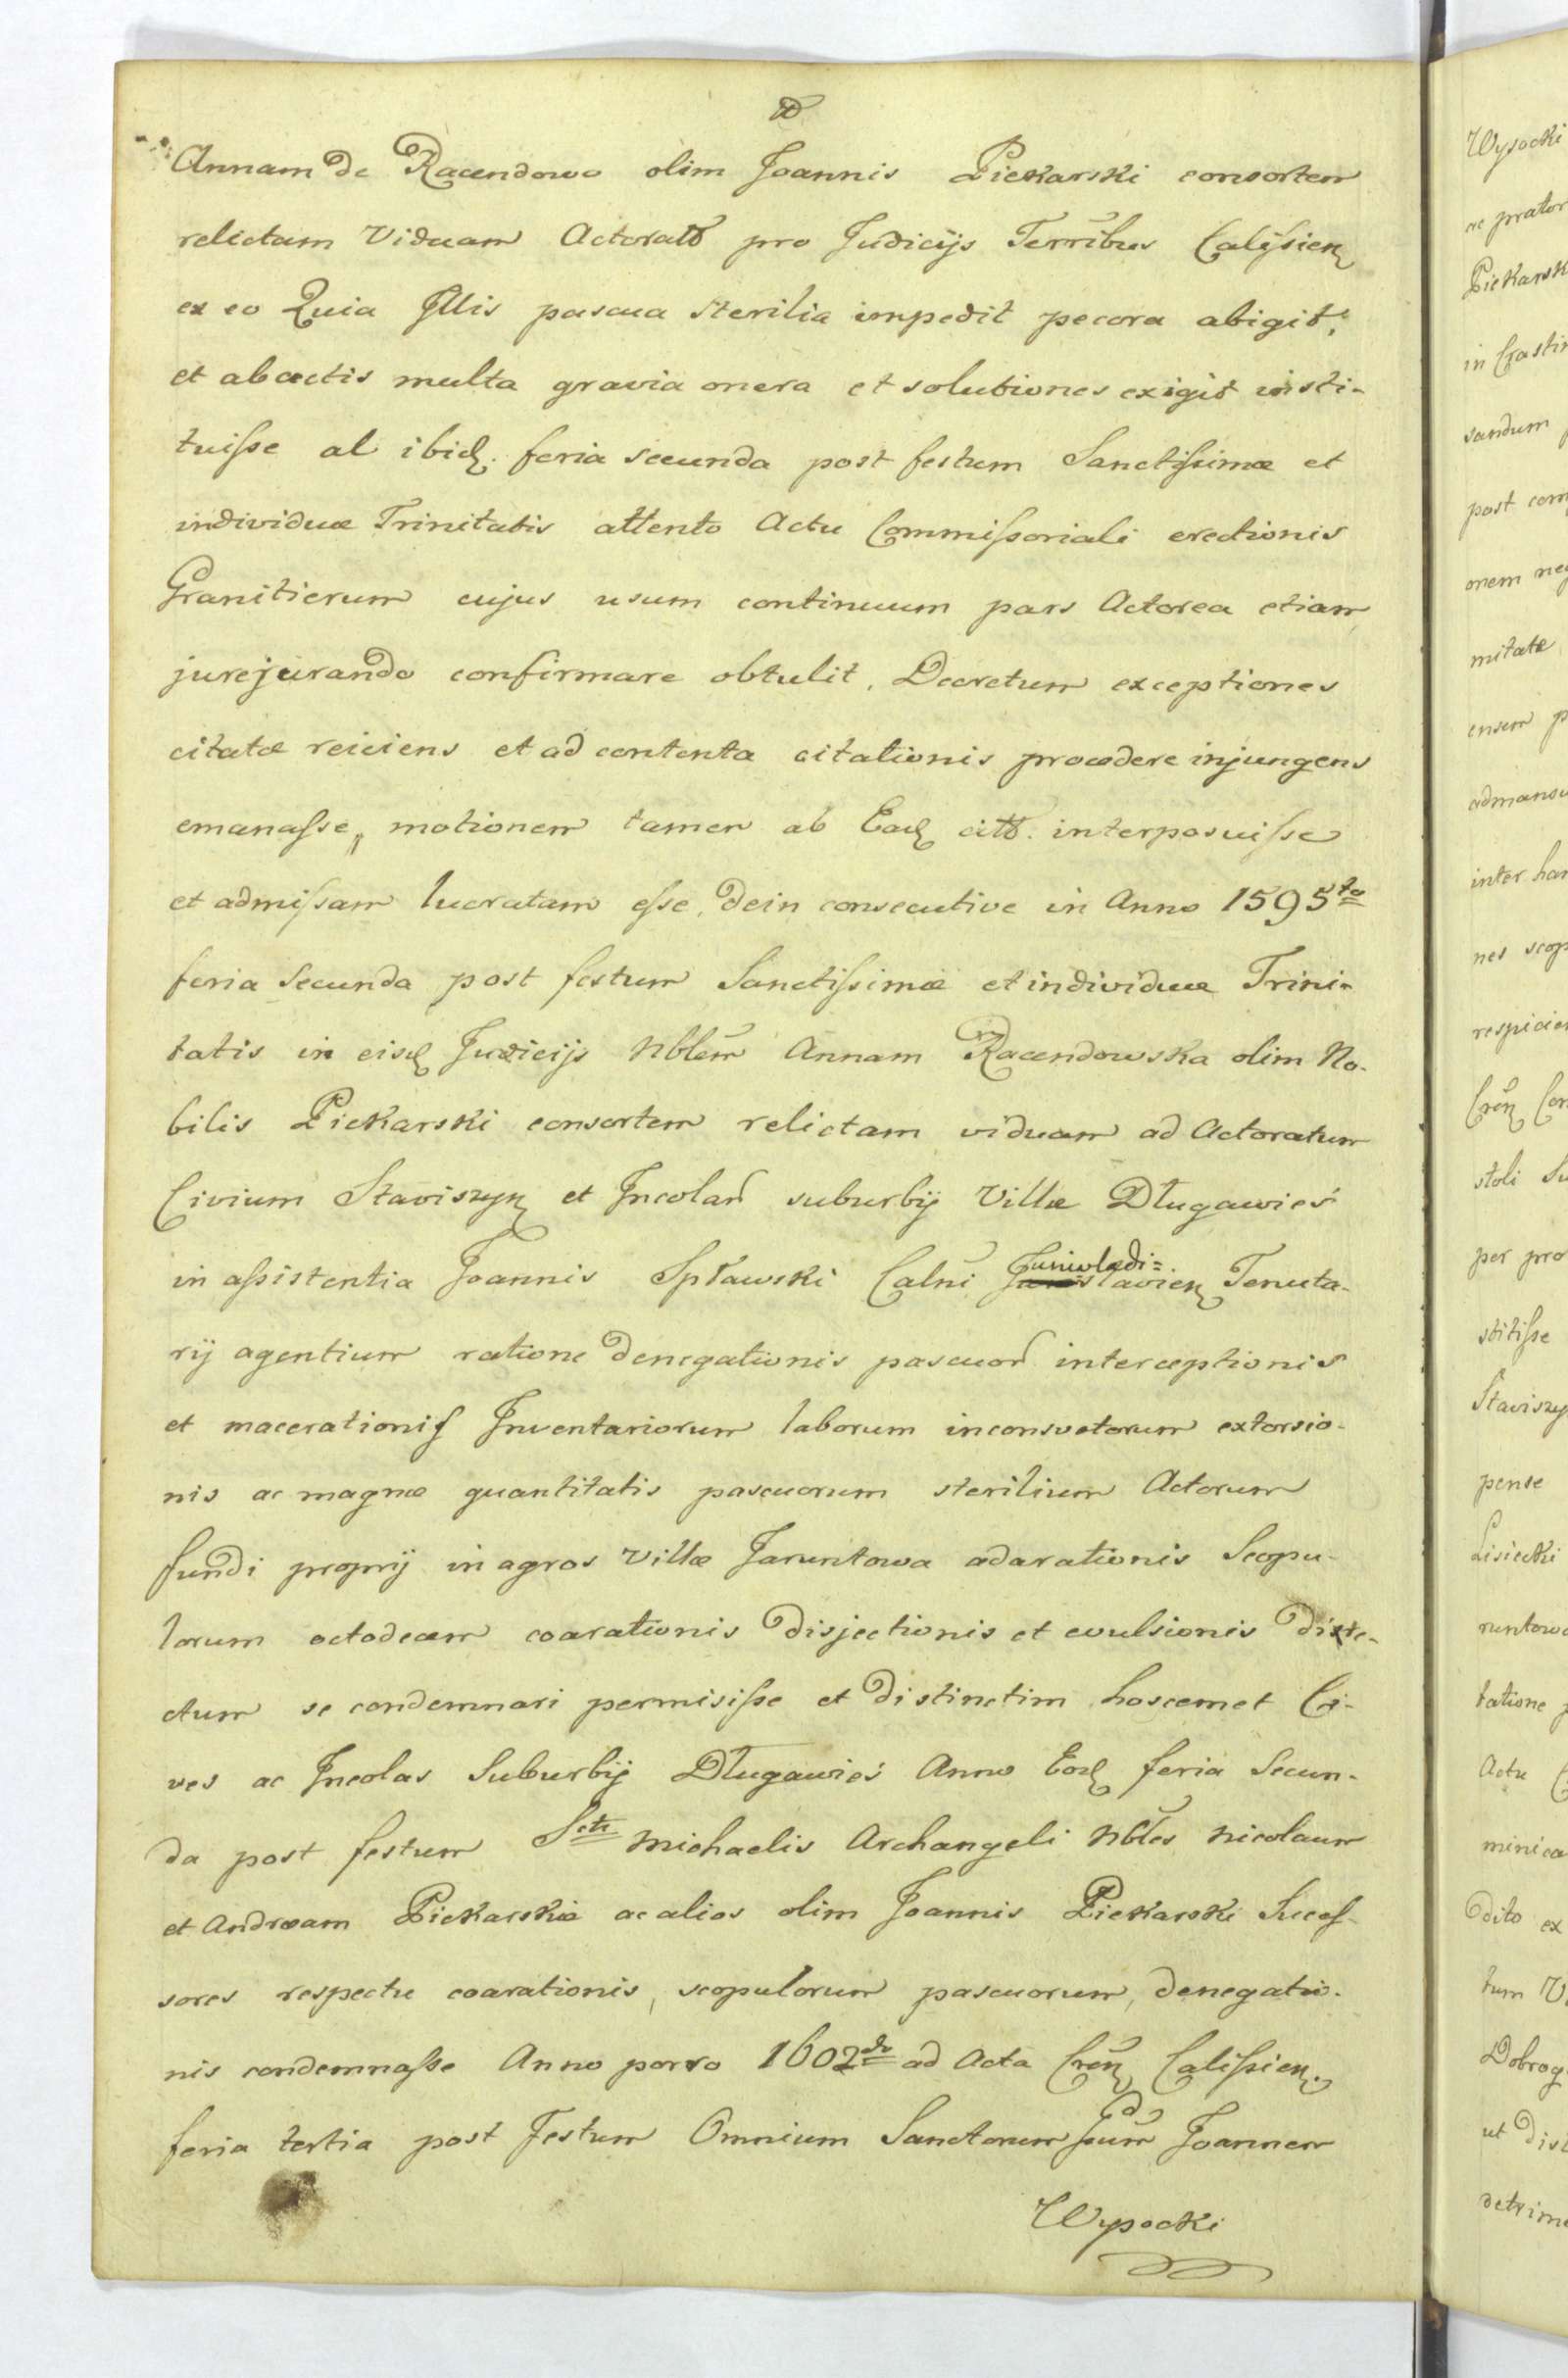 Annam de Racendowo olim Joannis Piekarski consortem
relictam Viduam Actorat͠ pro Judicijs Terr͠ibus Calisien͠
ex eo Quia Illis pascua sterilia impedit pecora abigit,
et abactis multa gravia onera et solutiones exigit insti-
tuisse al ibid. feria secunda post festum Sanctissimæ et
individuæ Trinitatis attento Actu Commissoriali erectionis
Granitierum cujus usum continuum pars Actorea etiam
jurejurando confirmare obtulit, Decretum exceptiones
citatæ reiiciens et ad contenta citationis procedere injungens
emanasse, motionem tamen ab Ead citt. interposuisse
et admissam lucratam esse, dein consecutive in Anno 1595to
feria secunda post festum Sanctissimæ et individuæ Trini-
tatis in eisd Judicijs Nbl͠em Annam Racendowska olim No-
bilis Piekarski consortem relictam viduam ad Actoratum
Civium Staviszyn͠ et Incolar͠ suburbij Villæ Długawies
in assistentia Joannis Spławski Caln͠i Juniwladi=
slavien͠ Tenuta-
rij agentium ratione denegationis pascuor͠ interceptionis
et macerationis Inventariorum laborum inconsvetorum extorsio-
nis ac magnæ quantitatis pascuorum sterilium Actorum
fundi proprij in agros Villæ Jaruntowa adarationis Scopu-
lorum octodecem coarationis disjectionis et evulsionis diste-
ctum se condemnari permisisse et distinctim hoscemet Ci-
ves ac Incolas Suburbij Długawies Anno Eod feria Secun-
da post festum Scti Michaelis Archangeli Nbl͠es Nicolaum
et Andræam Piekarskie ac alios olim Joannis Piekarski Succes-
sores respectu coarationis, scopulorum pascuorum, denegatio-
nis condemnasse Anno porro 1602do ad Acta Cren͠ Calissien͠.
feria tertia post Festum Omnium Sanctorum Joannem
Wysocki